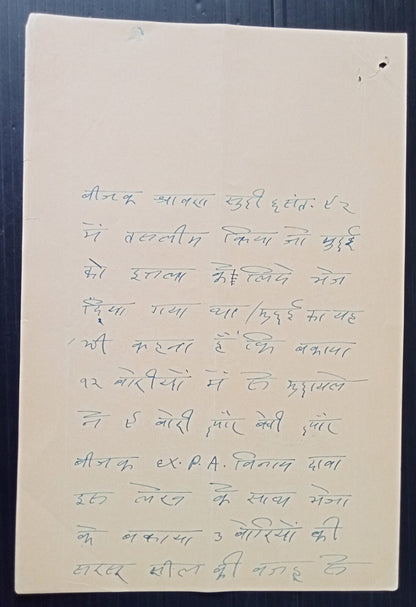 बीजक श्रावण सुदी ६ संत. ९२
में तसलीम किया जो मुद्दई
को इत्तला के लिये भेज
दिया गया था / मुद्दई का यह
भी कहना है कि बकाया
१२ बोरीयों में से मुद्दायले
ने ९ बोरी और बेची और
बीजक ex. P. A. बिनाय दावा
इस लेटर के साथ भेजा
के बकाया 3 बोरियों की
सील की वजह से